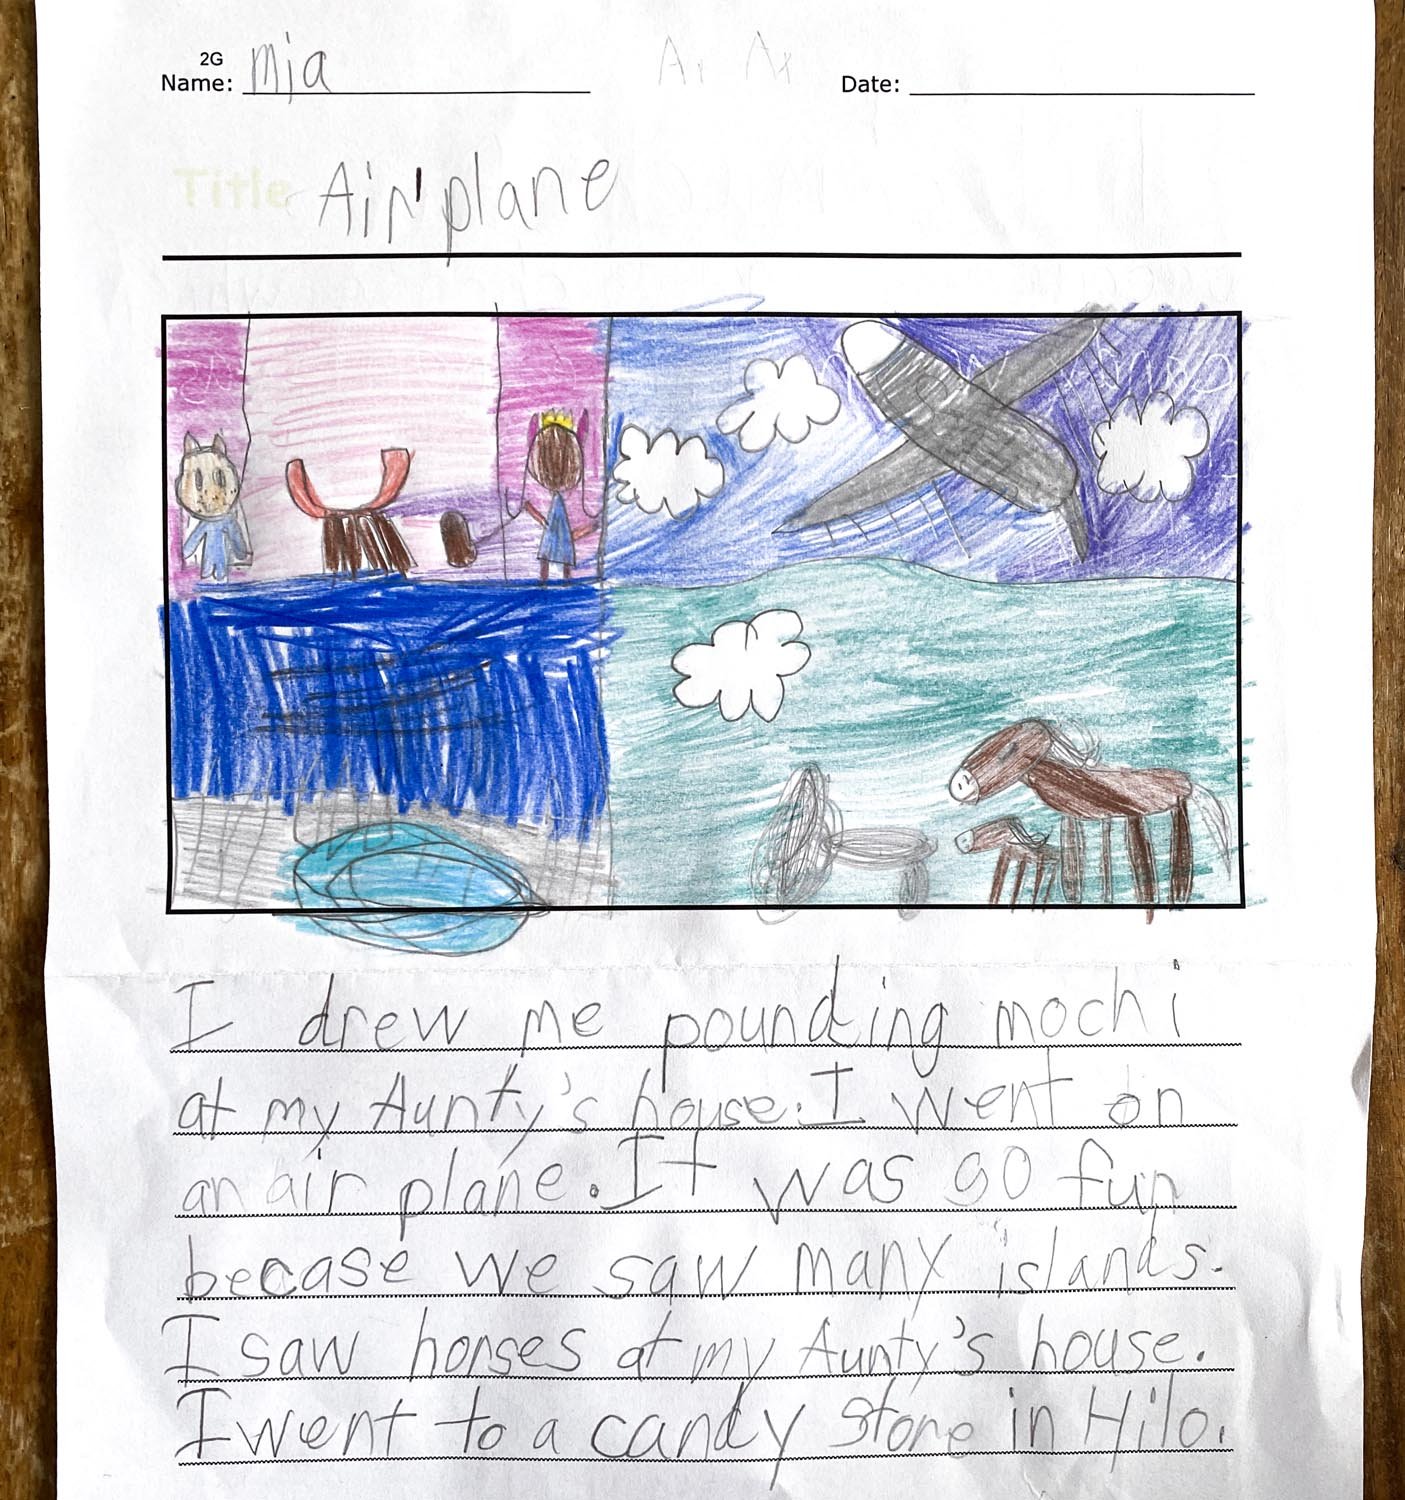 2G
Name: Mia
Date:
Title Air'plane
I drew me pounding mochi
at my Aunty's house. I went on
an air plane. It was so fun
becase we saw many islands.
I saw horses at my Aunty's house.
I went to a candy store in Hilo.